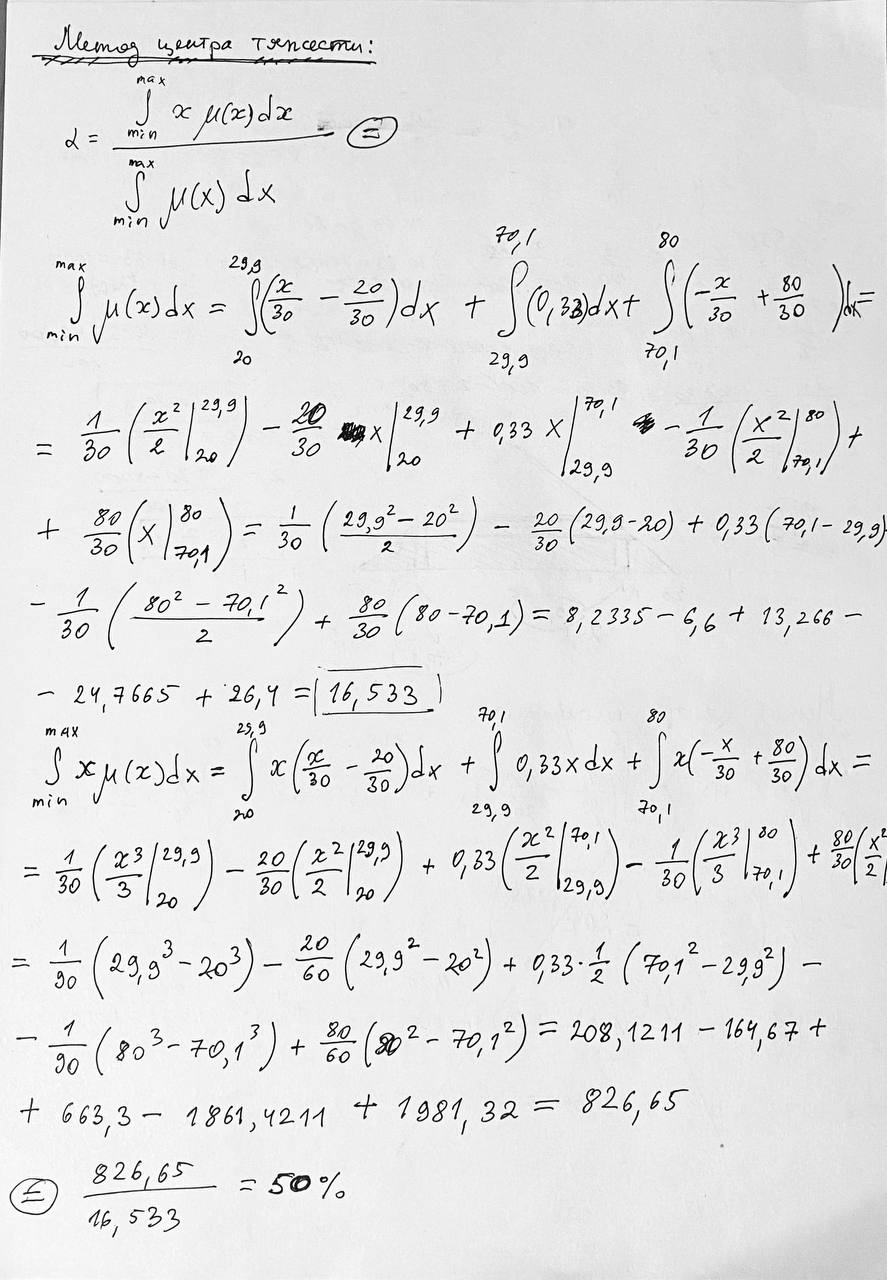 Метод центра тяжести:
α = ∫_min^max x μ(x) dx / ∫_min^max μ(x) dx =
∫_min^max μ(x) dx = ∫_20^29,9 (x/30 − 20/30) dx + ∫_29,9^70,1 (0,33) dx + ∫_70,1^80 (−x/30 + 80/30) dx =
= 1/30 (x²/2 |_20^29,9) − 20/30 x |_20^29,9 + 0,33 x |_29,9^70,1 − 1/30 (x²/2 |_70,1^80) +
+ 80/30 (x |_70,1^80) = 1/30 ((29,9² − 20²)/2) − 20/30 (29,9 − 20) + 0,33 (70,1 − 29,9)
− 1/30 ((80² − 70,1²)/2) + 80/30 (80 − 70,1) = 8,2335 − 6,6 + 13,266 −
− 24,7665 + 26,4 = 16,533
∫_min^max x μ(x) dx = ∫_20^29,9 x (x/30 − 20/30) dx + ∫_29,9^70,1 0,33 x dx + ∫_70,1^80 x (−x/30 + 80/30) dx =
= 1/30 (x³/3 |_20^29,9) − 20/30 (x²/2 |_20^29,9) + 0,33 (x²/2 |_29,9^70,1) − 1/30 (x³/3 |_70,1^80) + 80/30 (x²/2 |
= 1/90 (29,9³ − 20³) − 20/60 (29,9² − 20²) + 0,33 · 1/2 (70,1² − 29,9²) −
− 1/90 (80³ − 70,1³) + 80/60 (80² − 70,1²) = 208,1211 − 164,67 +
+ 663,3 − 1861,4211 + 1981,32 = 826,65
= 826,65 / 16,533 = 50%